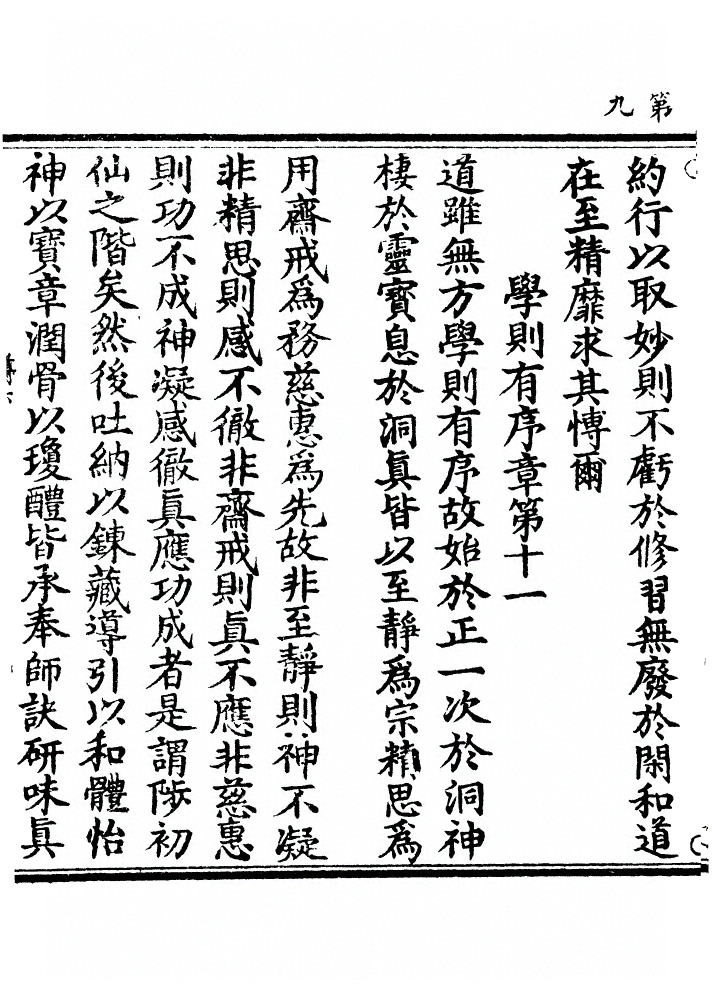 第九
約行以取妙則不虧於修習無廢於閑和道
在至精靡求其愽爾
學則有序章第十一
道雖無方學則有序故始於正一次於洞神
棲於靈寶息於洞真皆以至靜爲宗精思爲
用齋戒爲務慈惠爲先故非至靜則神不凝
非精思則感不徹非齋戒則真不應非慈惠
則功不成神凝感徹真應功成者是謂陟初
仙之階矣然後吐納以鍊藏導引以和體怡
神以寶章潤骨以瓊醴皆承奉師訣研味真